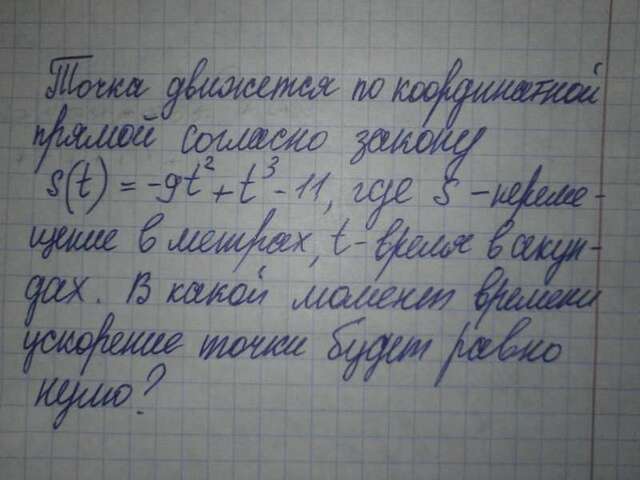 Точка движется по координатной
прямой согласно закону
s(t) = -9t² + t³ - 11, где s - переме-
щение в метрах, t - время в секун-
дах. В какой момент времени
ускорение точки будет равно
нулю?